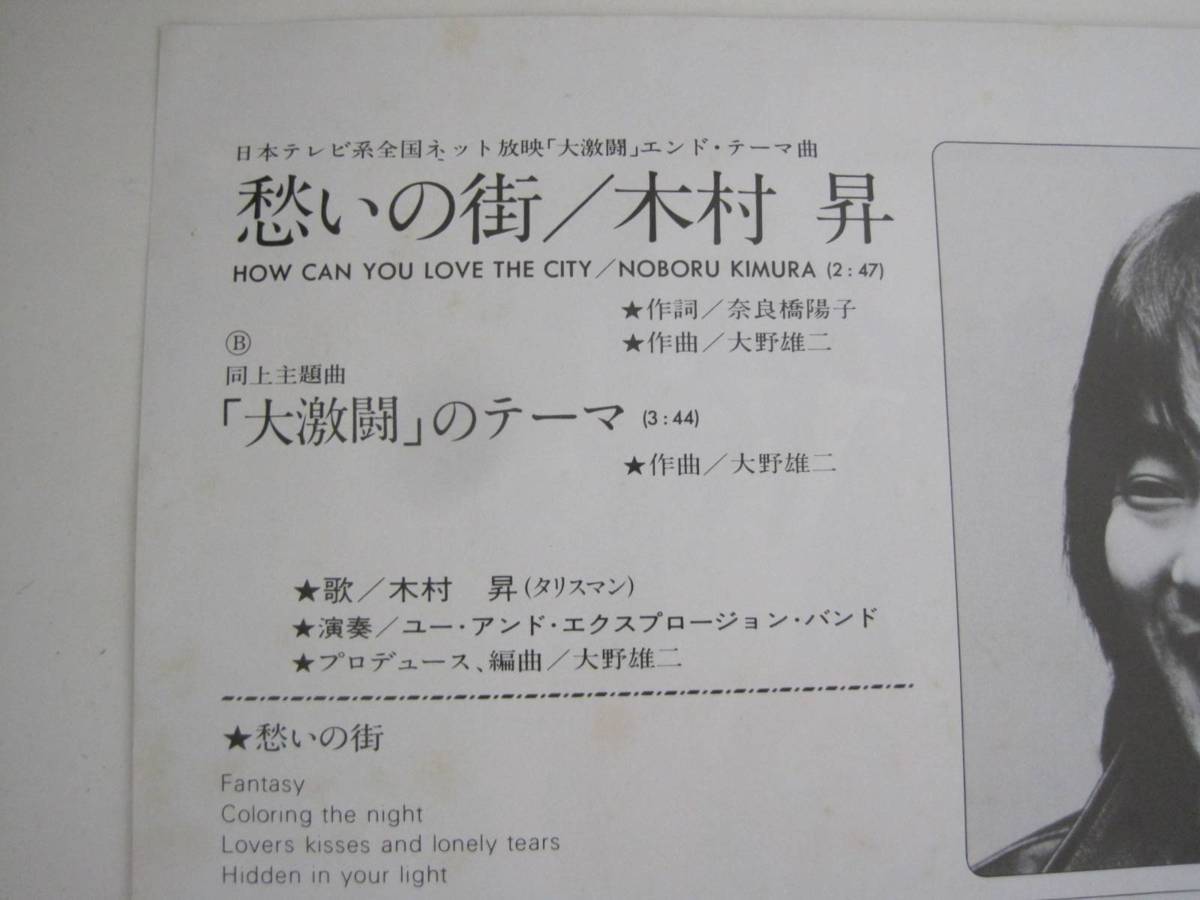 日本テレビ系全国ネット放映「大激闘」エンド・テーマ曲
愁いの街／木村 昇
HOW CAN YOU LOVE THE CITY／NOBORU KIMURA (2:47)
★作詞／奈良橋陽子
★作曲／大野雄二
Ⓑ
同上主題曲
「大激闘」のテーマ (3:44)
★作曲／大野雄二
★歌／木村 昇(タリスマン)
★演奏／ユー・アンド・エクスプロージョン・バンド
★プロデュース、編曲／大野雄二
★愁いの街
Fantasy
Coloring the night
Lovers kisses and lonely tears
Hidden in your light